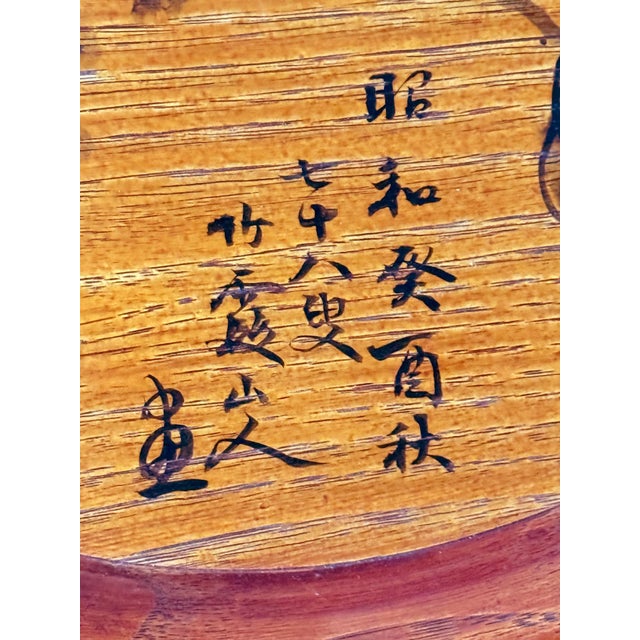 昭和癸酉秋
七十八叟
竹霞山人
画